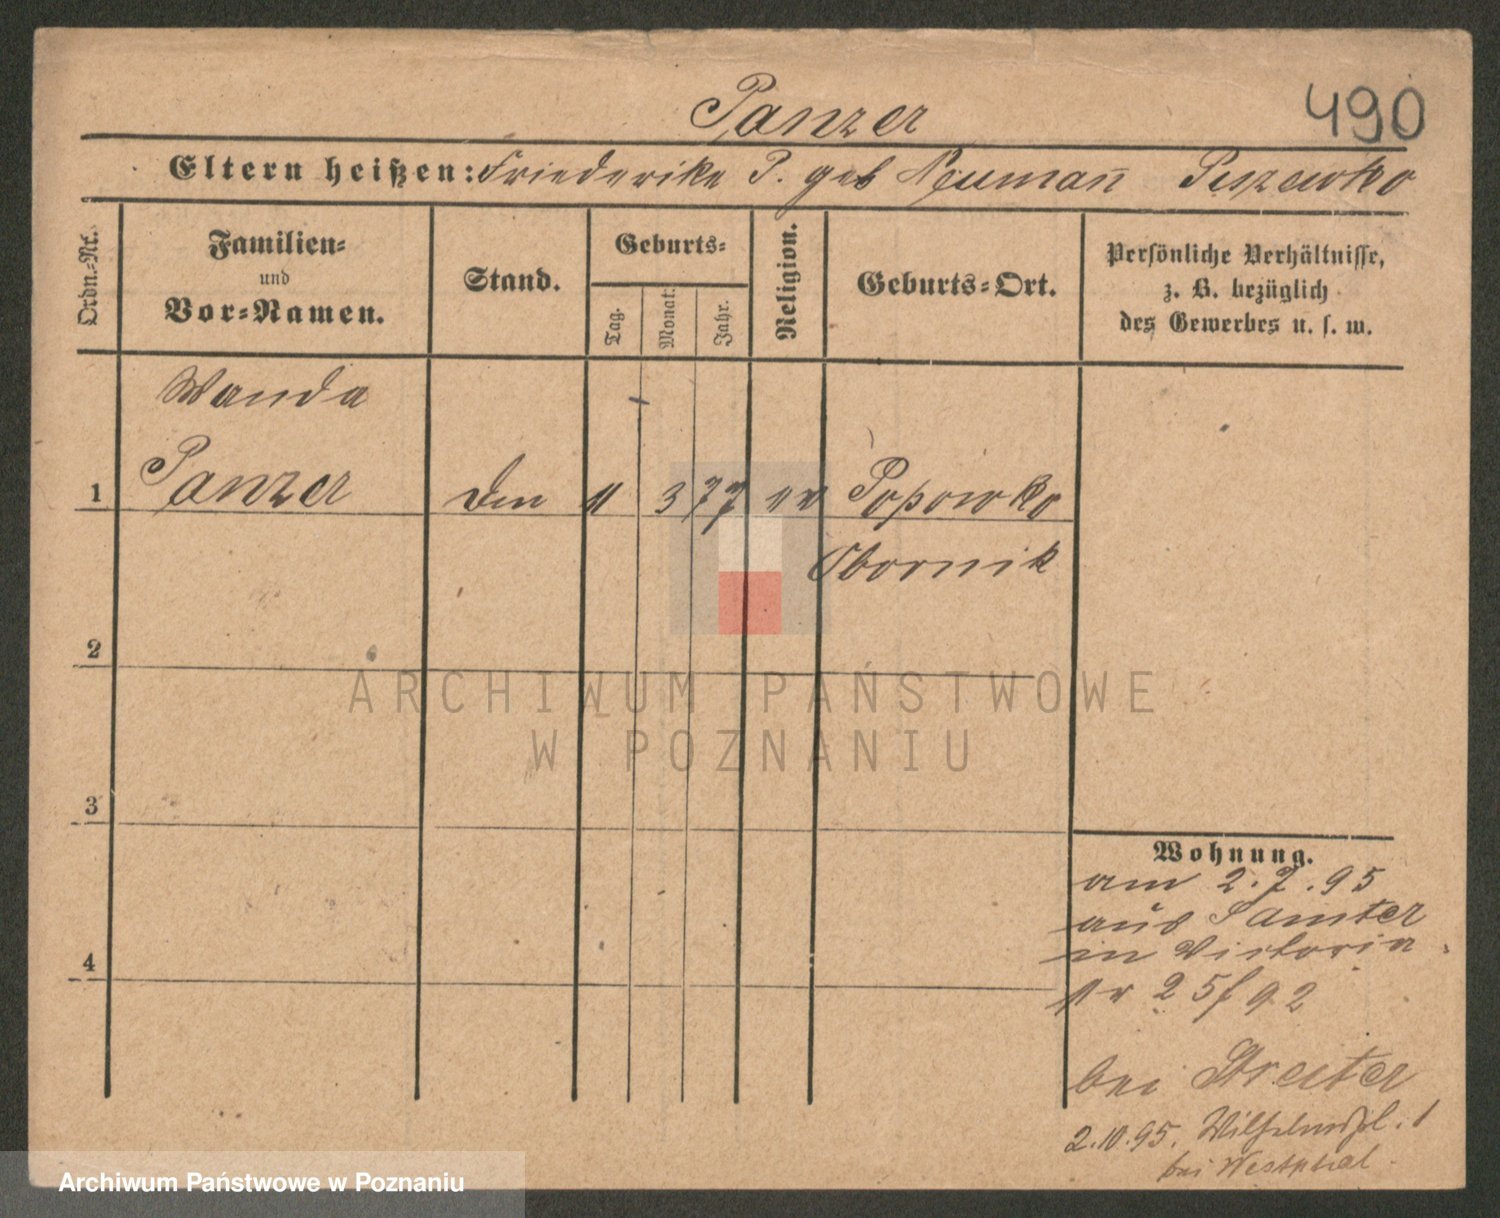 Panzer
490
Eltern heißen: Friederike P. geb Neuman̄
Ordn.-Nr.
Familien-
und
Vor-Namen.
Stand.
Geburts-
Tag.
Monat.
Jahr.
Religion.
Geburts-Ort.
Persönliche Verhältnisse,
z. B. bezüglich
des Gewerbes u. s. w.
Wanda
1 Panzer 3 77 Popowko
Obornik
2
3
4
Wohnung.
am 2.7.95
aus Samter
in Victoria
25 92
bei Streiter
2.10.95. Wilhelmspl. 1
bei Westphal
ARCHIWUM PAŃSTWOWE
W POZNANIU
Archiwum Państwowe w Poznaniu